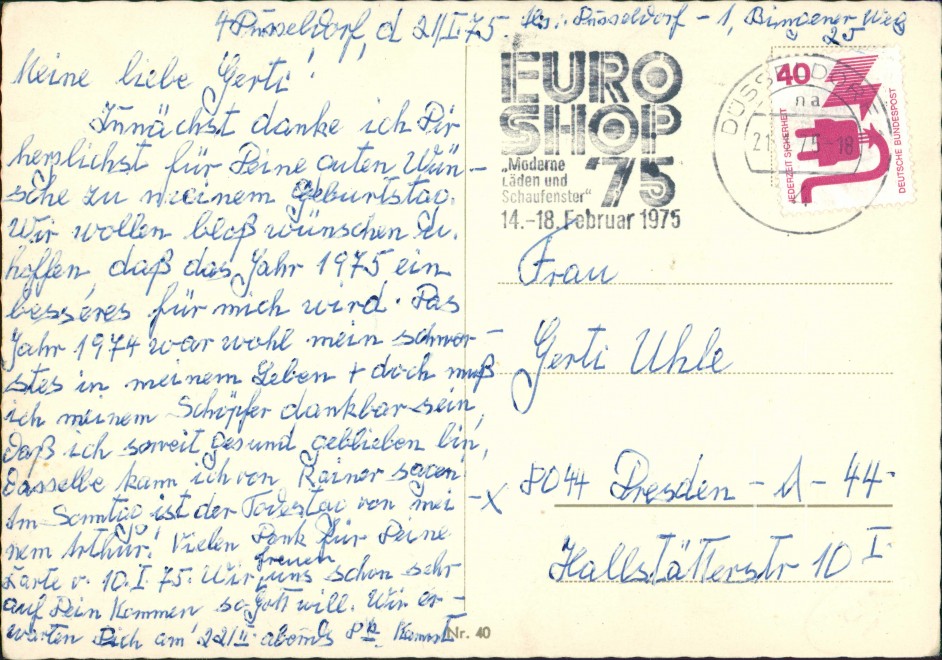 4 Düsseldorf, d 21/I.75. Abs.: Düsseldorf - 1, Bingener Weg
25
Meine liebe Gerti!
Zunächst danke ich Dir
herzlichst für Deine guten Wün-
sche zu meinem Geburtstag.
Wir wollen bloß wünschen u.
hoffen, daß das Jahr 1975 ein
besseres für mich wird. Das
Jahr 1974 war wohl mein schwer-
stes in meinem Leben + doch muß
ich meinem Schöpfer dankbar sein,
daß ich soweit gesund geblieben bin,
dasselbe kann ich von Rainer sagen.
Am Sonntag ist der Todestag von mei-
nem Arthur! Vielen Dank für Deine
Karte v. 10.I.75. Wir freuen uns schon sehr
auf Dein Kommen so Gott will. Wir er-
warten Dich am 22/II abends
EURO
SHOP
'75
"Moderne
Läden und
Schaufenster"
14.-18. Februar 1975
DÜSSELDORF
na
21. 75-18
40
JEDERZEIT SICHERHEIT
DEUTSCHE BUNDESPOST
Frau
Gerti Uhle
X 8044 Dresden - A - 44
Hallstätterstr 10 I
Nr. 40